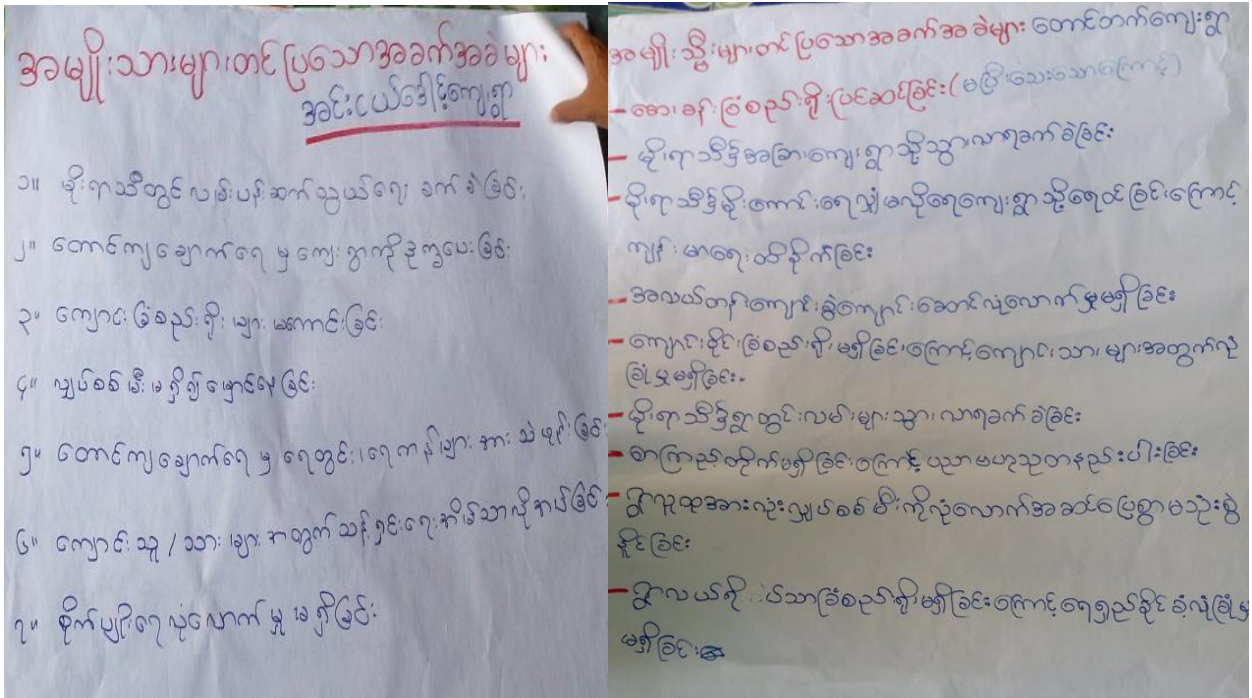 အမျိုးသားများတင်ပြသောအခက်အခဲများ
အင်းငယ်ဒေါင့်ကျေးရွာ
၁။ မိုးရာသီတွင် လမ်းပန်းဆက်သွယ်ရေး ခက်ခဲခြင်း
၂။ တောင်ကျချောက်ရေ မှ ကျေးရွာကိုဒုက္ခပေးခြင်း
၃။ ကျောင်းခြံစည်းရိုး များ မကောင်းခြင်း
၄။ လျှပ်စစ်မီး မရှိ၍ မှောင်နေခြင်း
၅။ တောင်ကျချောက်ရေ မှ ရေတွင်း၊ ရေကန်များ အား သဲဖုန်းခြင်း
၆။ ကျောင်းသူ / သား များ အတွက် သန့်ရှင်းရေးအိမ်သာလိုအပ်ခြင်း
၇။ စိုက်ပျိုးရေလုံလောက်မှု မရှိခြင်း
အမျိုးသ္မီးများတင်ပြသောအခက်အခဲများ တောင်တက်ကျေးရွာ
- ဆေးခန်းခြံစည်းရိုးပြင်ဆင်ခြင်း (မပြီးသေးသောကြောင့်)
- မိုးရာသီ၌အခြားကျေးရွာသို့သွားလာရခက်ခဲခြင်း
- မိုးရာသီ၌မိုးကောင်းရေလျှံမလိုရေကျေးရွာသို့ရေဝင်ခြင်းကြောင့်
ကျန်းမာရေးထိခိုက်ခြင်း
- အလယ်တန်းကျောင်းခွဲကျောင်းဆောင်လုံလောက်မှုမရှိခြင်း
- ကျောင်းဝိုင်းခြံစည်းရိုးမရှိခြင်းကြောင့်ကျောင်းသားများအတွက်လုံ
ခြုံမှုမရှိခြင်း
- မိုးရာသီ၌ရွာတွင်းလမ်းများသွားလာရခက်ခဲခြင်း
- စာကြည့်တိုက်မရှိခြင်းကြောင့် ပညာဗဟုသုတနည်းပါးခြင်း
- ရွာလူထုအားလုံးလျှပ်စစ်မီးကိုလုံလောက်အဆင်ပြေစွာမသုံးစွဲ
နိုင်ခြင်း
- ရွာလယ်ရိပ်သာခြံစည်းရိုးမရှိခြင်းကြောင့်ရေရှည်ခိုင်ခံ့လုံခြုံမှု
မရှိခြင်း